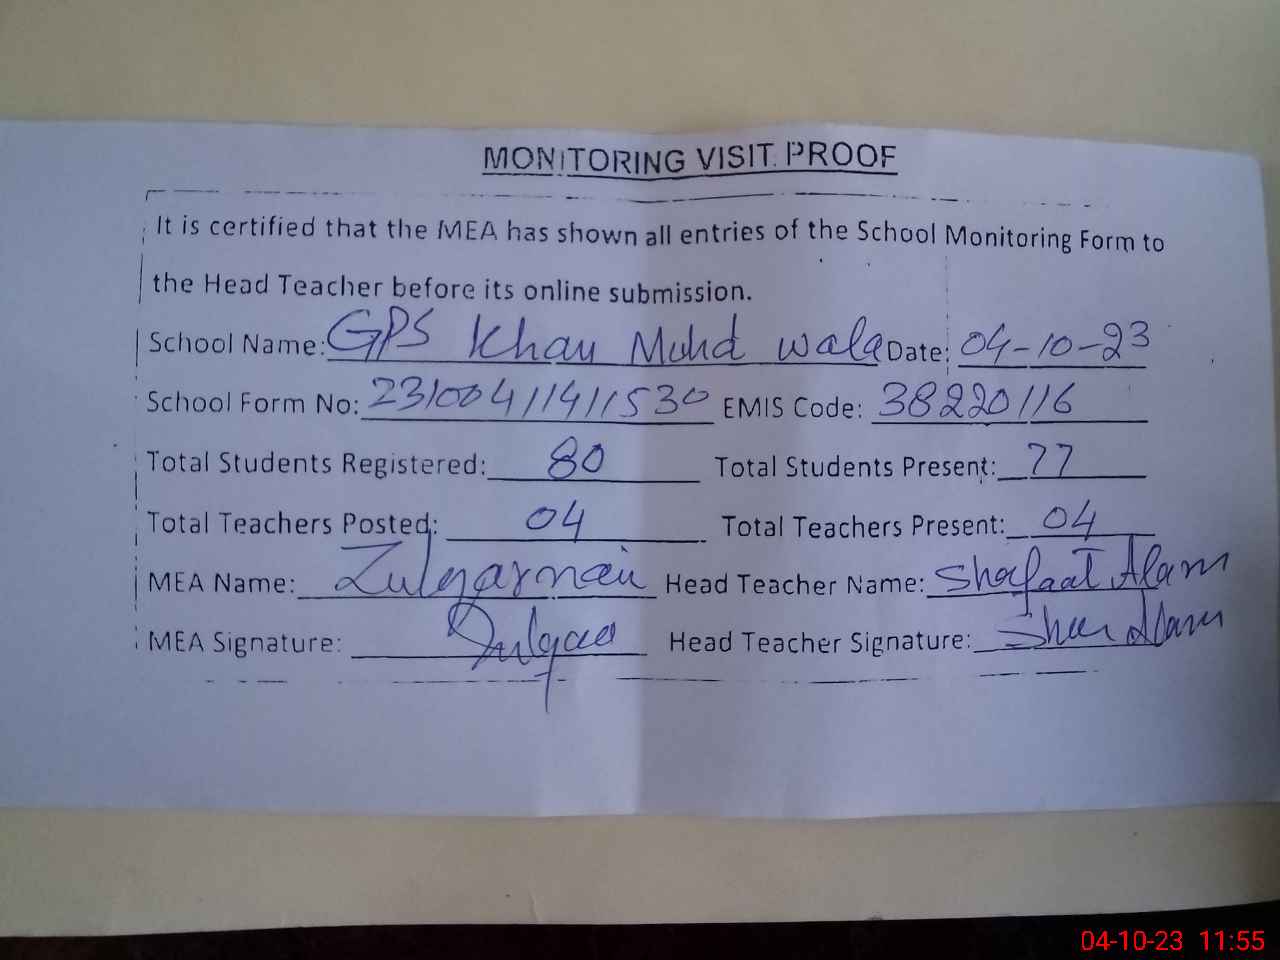 MONITORING VISIT PROOF
It is certified that the MEA has shown all entries of the School Monitoring Form to
the Head Teacher before its online submission.
School Name: GPS Khan Muhd wala Date: 04-10-23
School Form No: 23100411411530 EMIS Code: 38220116
Total Students Registered: 80 Total Students Present: 77
Total Teachers Posted: 04 Total Teachers Present: 04
MEA Name: Zulqarnain Head Teacher Name: Shafaat Alam
MEA Signature: Head Teacher Signature: Alam
04-10-23 11:55